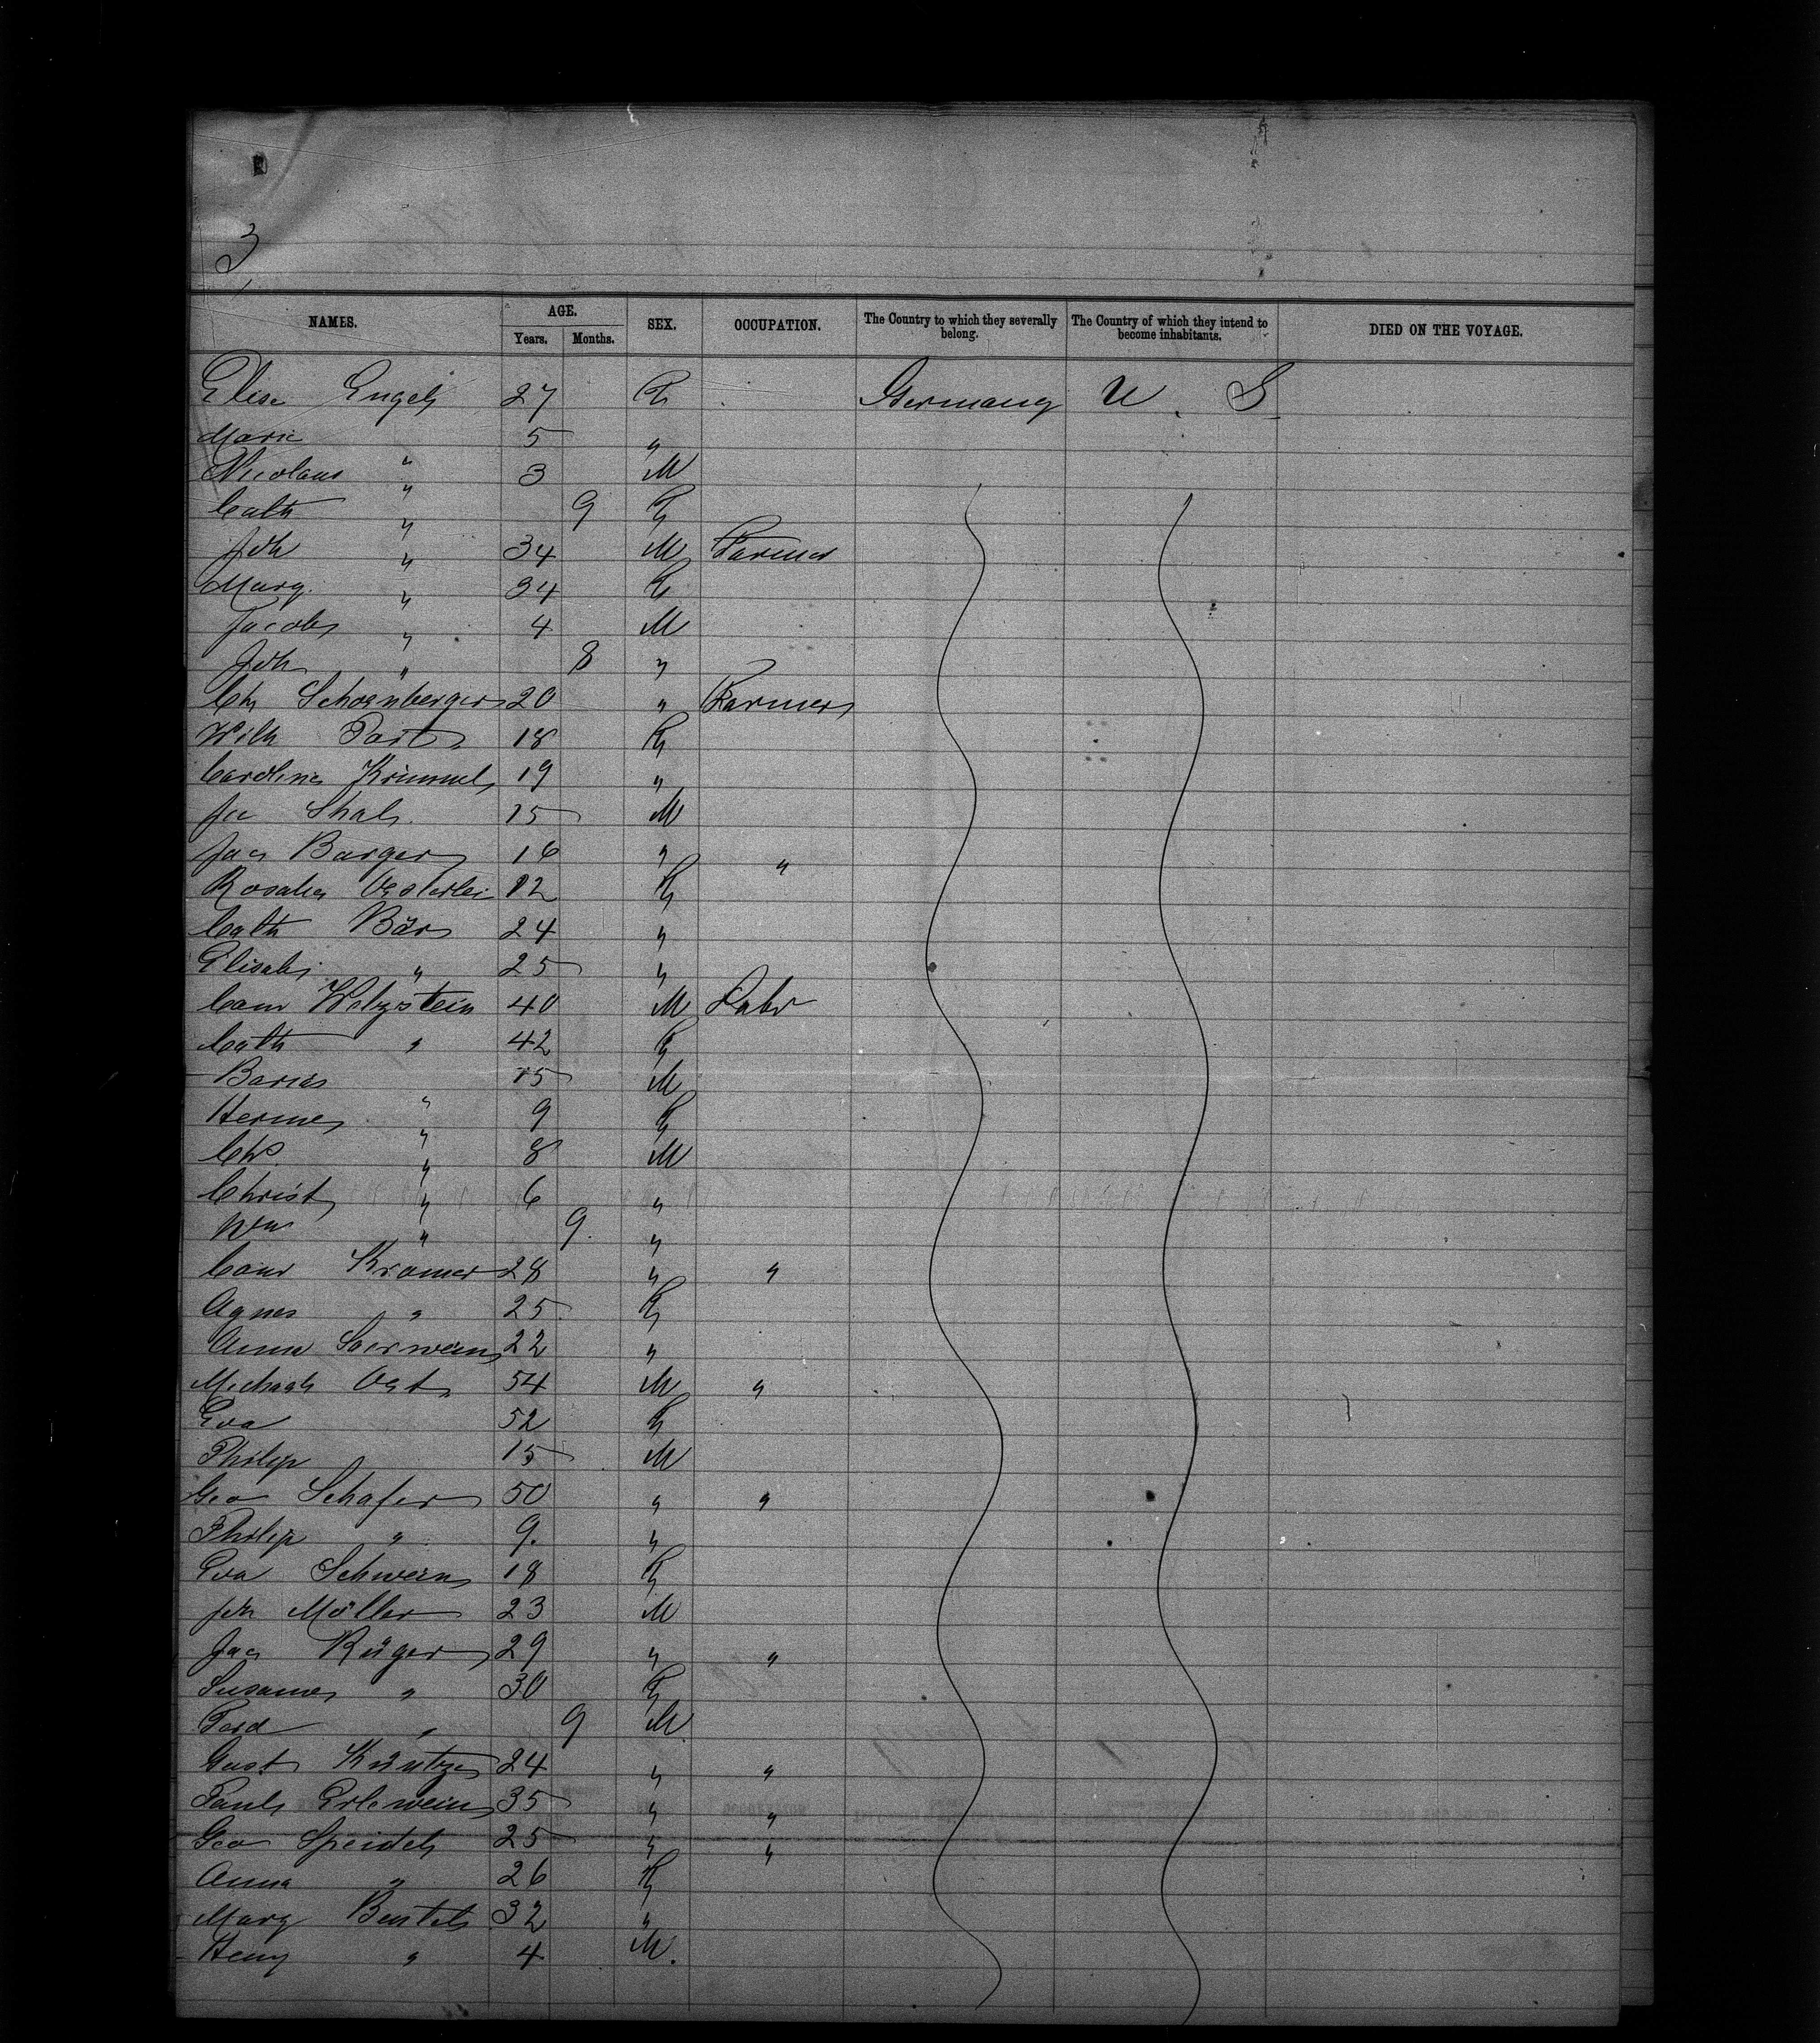 3
NAMES. AGE. SEX. OCCUPATION. The Country to which they severally belong. The Country of which they intend to become inhabitants. DIED ON THE VOYAGE.
Years. Months.
Elise Engels 27 F Germany U. S
Marie " 5 "
Nicolaus " 3 M
Cath " 9 F
Joh " 34 M Farmer
Marg. " 34 F
Jacob " 4 M
Joh " 8 "
Ch Schoenberger 20 " Farmer
Wilh 18 F
Caroline Krimmel 19 "
15 M
Jac Barger 16 " "
Rosalie Oesterlei 12 F
Cath Bär 24 "
Elisab " 25 "
Conr Wetzstein 40 M Labr
Cath " 42 F
15 M
Hermine " 9 F
Chs " 8 M
Christ " 6 "
Wm " 9. "
Conr Kramer 28 " "
Agnes " 25 F
Anna Saerwein 22 "
Michael Ost 54 M "
Eva 52 F
Philip 15 M
Geo Schafer 50 " "
Philip " 9. "
Eva Schwein 18 F
Joh Möller 23 M
Jac Rüger 29 " "
Susanne " 30 F
Ferd " 9 M
Gust Küntze 24 " "
Paul Erlewein 35 " "
Geo Speidel 25 " "
Anna " 26 F
Marg Bentel 32 "
Henry " 4 M.